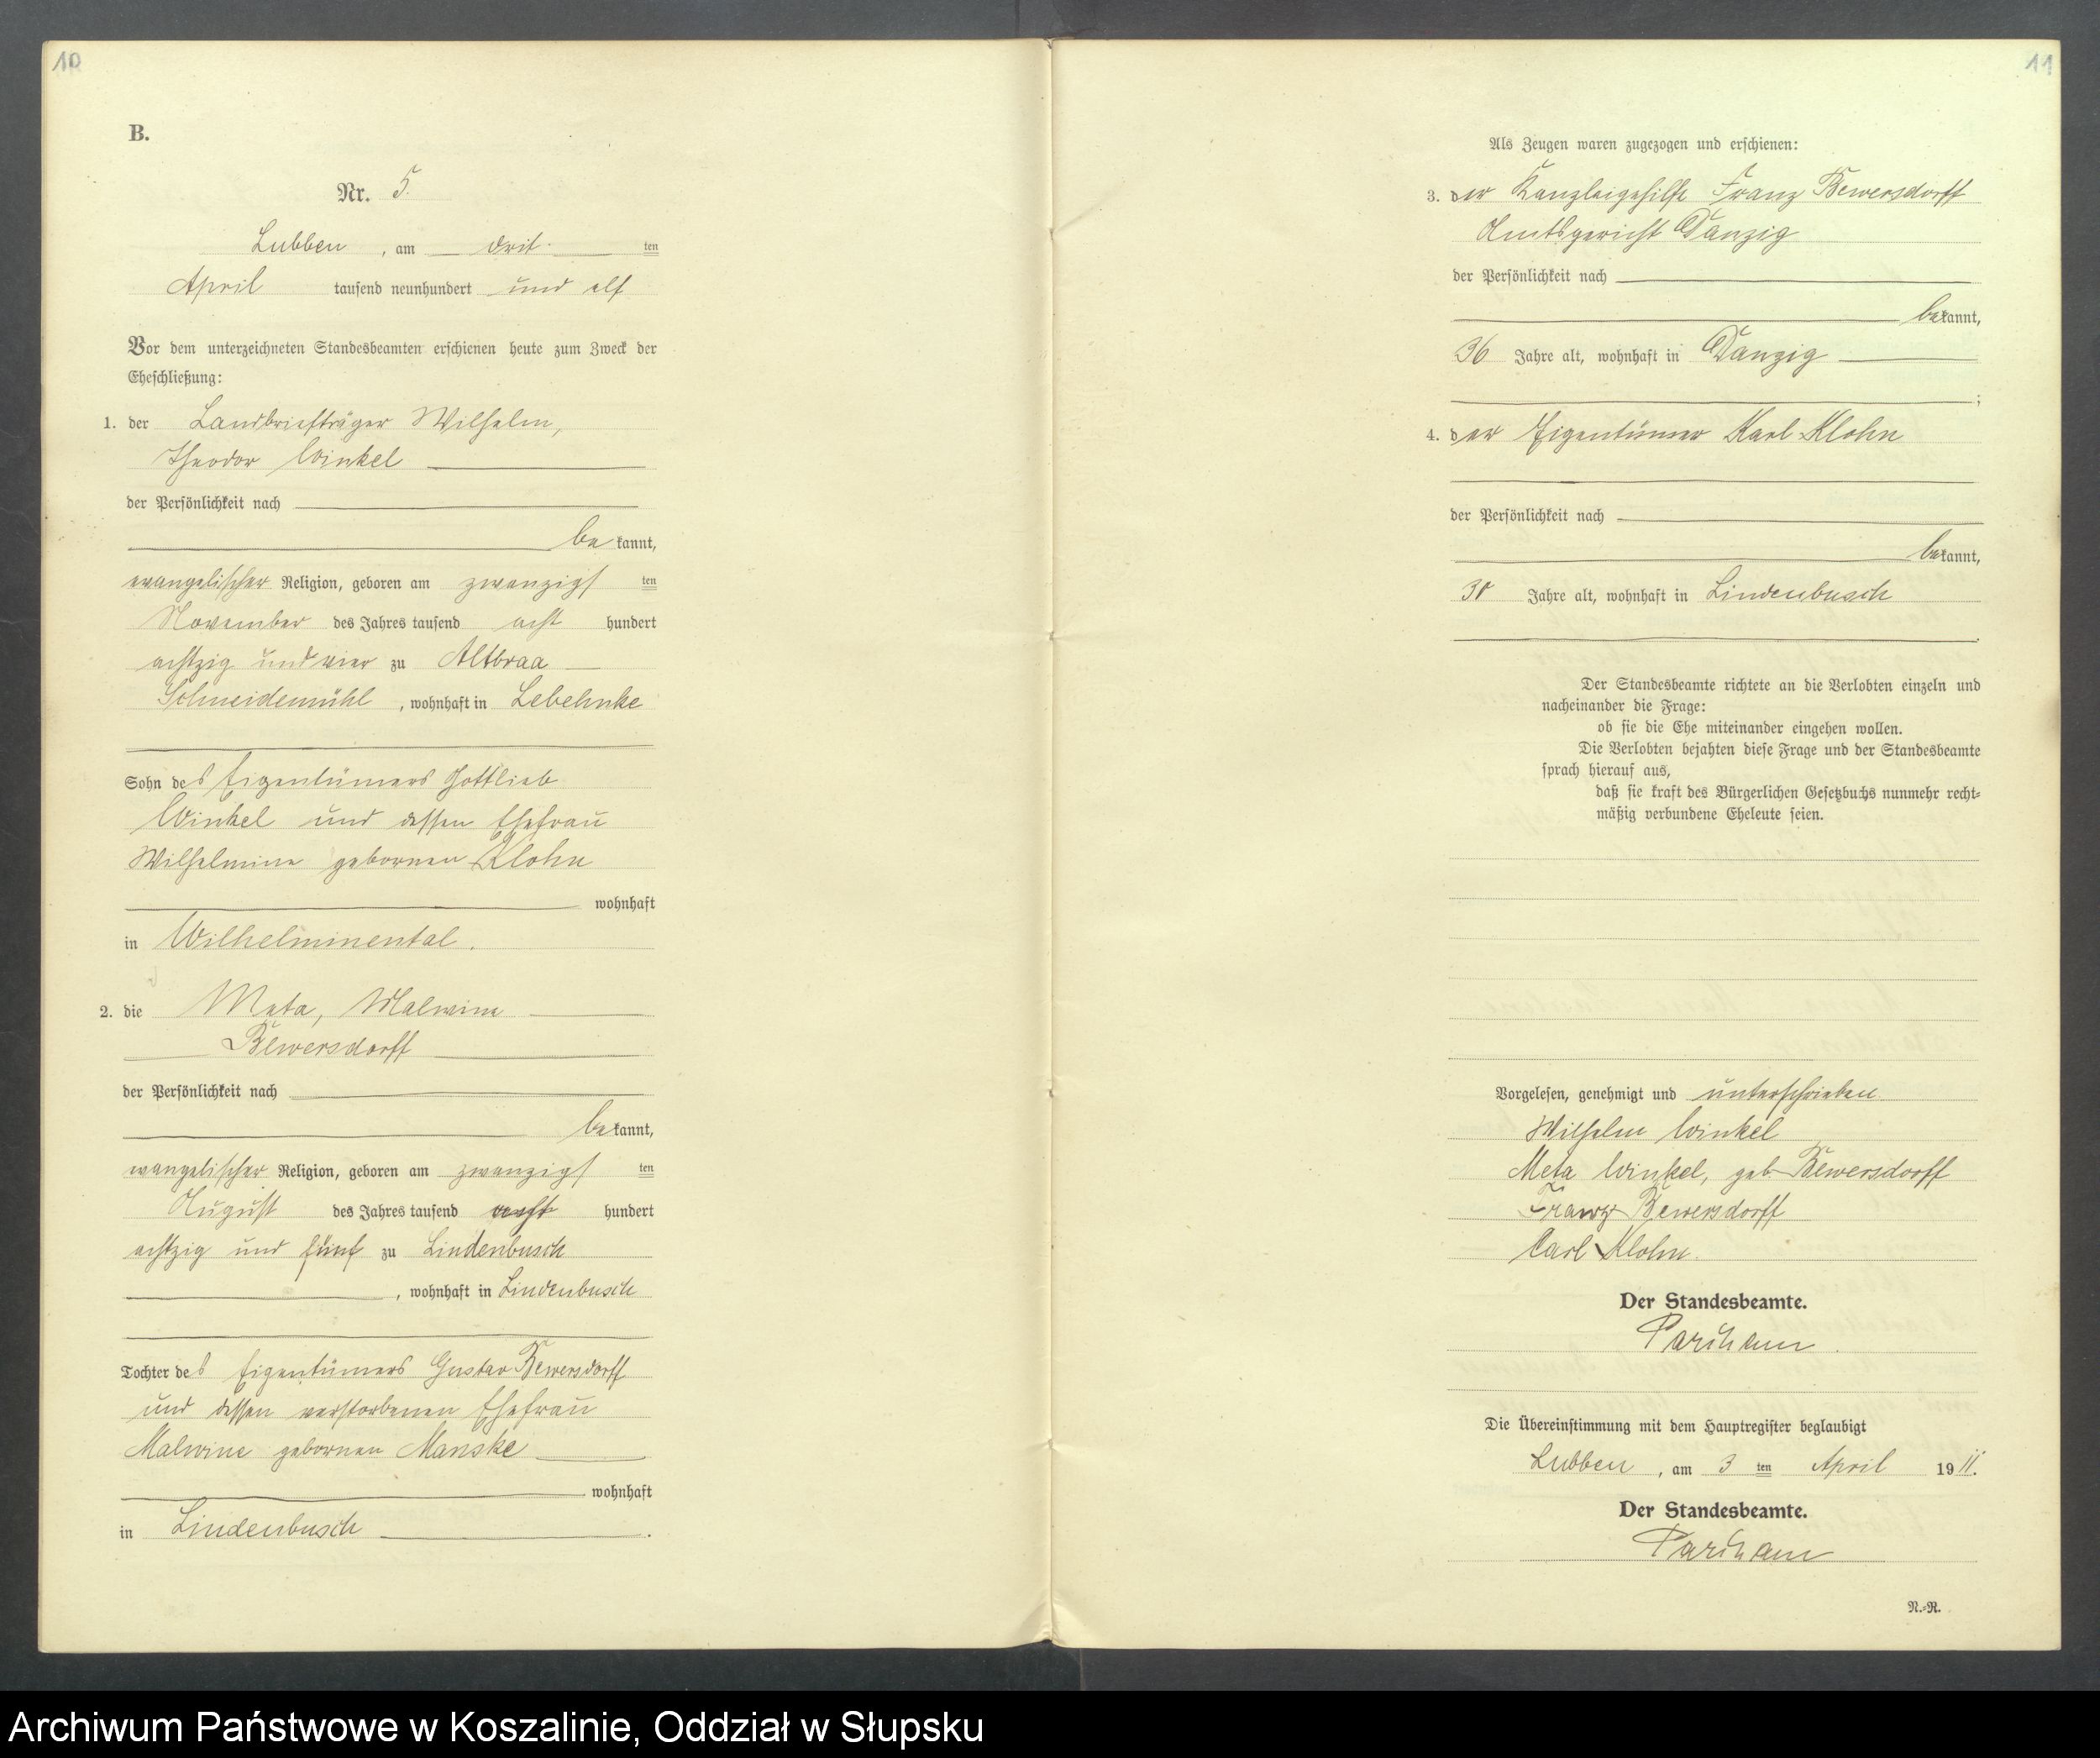 10
B.
Nr. 5.
Lubben, am drit ten
April tausend neunhundert und elf
Vor dem unterzeichneten Standesbeamten erschienen heute zum Zweck der
Eheschließung:
1. der Landbriefträger Wilhelm,
Theodor Winkel
der Persönlichkeit nach
bekannt,
evangelischer Religion, geboren am zwanzigs ten
November des Jahres tausend acht hundert
achtzig und vier zu Altbraa
Schneidemühl, wohnhaft in Lebehnke
Sohn des Eigentümers Gottlieb
Winkel und dessen Ehefrau
Wilhelmine gebornen Klohn
wohnhaft
in Wilhelminental.
2. die Meta, Malwine
Bewersdorff
der Persönlichkeit nach
bekannt,
evangelischer Religion, geboren am zwanzigs ten
August des Jahres tausend acht hundert
achtzig und fünf zu Lindenbusch
, wohnhaft in Lindenbusch
Tochter des Eigentümers Gustav Bewersdorff
und dessen verstorbenen Ehefrau
Malwine gebornen Manske
wohnhaft
in Lindenbusch.
11
Als Zeugen waren zugezogen und erschienen:
3. der Kanzleigehilfe Franz Bewersdorff
Amtsgericht Danzig
der Persönlichkeit nach
bekannt,
36 Jahre alt, wohnhaft in Danzig
;
4. der Eigentümer Karl Klohn
der Persönlichkeit nach
bekannt,
30 Jahre alt, wohnhaft in Lindenbusch
Der Standesbeamte richtete an die Verlobten einzeln und
nacheinander die Frage:
ob sie die Ehe miteinander eingehen wollen.
Die Verlobten bejahten diese Frage und der Standesbeamte
sprach hierauf aus,
daß sie kraft des Bürgerlichen Gesetzbuchs nunmehr recht-
mäßig verbundene Eheleute seien.
Vorgelesen, genehmigt und unterschrieben
Wilhelm Winkel
Meta Winkel, geb. Bewersdorff
Franz Bewersdorff
Carl Klohn.
Der Standesbeamte.
Die Übereinstimmung mit dem Hauptregister beglaubigt
Lubben, am 3 ten April 1911.
Der Standesbeamte.
N.-R.
Archiwum Państwowe w Koszalinie, Oddział w Słupsku